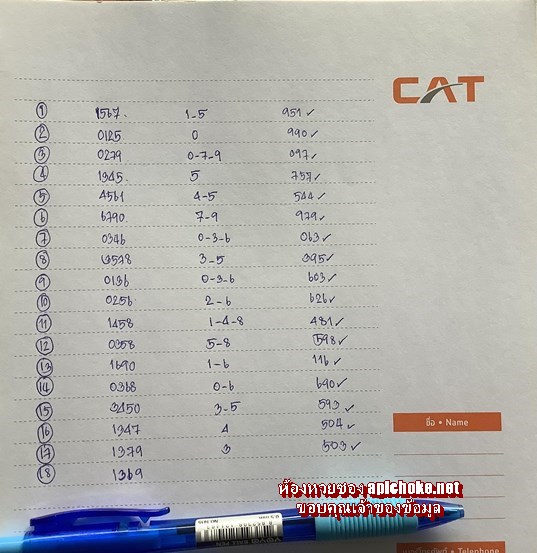 CAT
1 1567. 1-5 951 ✓
2 0125 0 990 ✓
3 0279 0-7-9 097 ✓
4 1345. 5 757 ✓
5 4561 4-5 544 ✓
6 6790 7-9 979 ✓
7 0346 0-3-6 063 ✓
8 3578 3-5 395 ✓
9 0136 0-3-6 603 ✓
10 0256 2-6 626 ✓
11 1458 1-4-8 481 ✓
12 0358 5-8 598 ✓
13 1690 1-6 116 ✓
14 0368 0-6 690 ✓
15 3450 3-5 593 ✓
16 1347 4 504 ✓
17 1379 3 503 ✓
18 1369
ชื่อ • Name
ห้องหวยซอง apichoke.net
ขอบคุณเจ้าของข้อมูล
Telephone